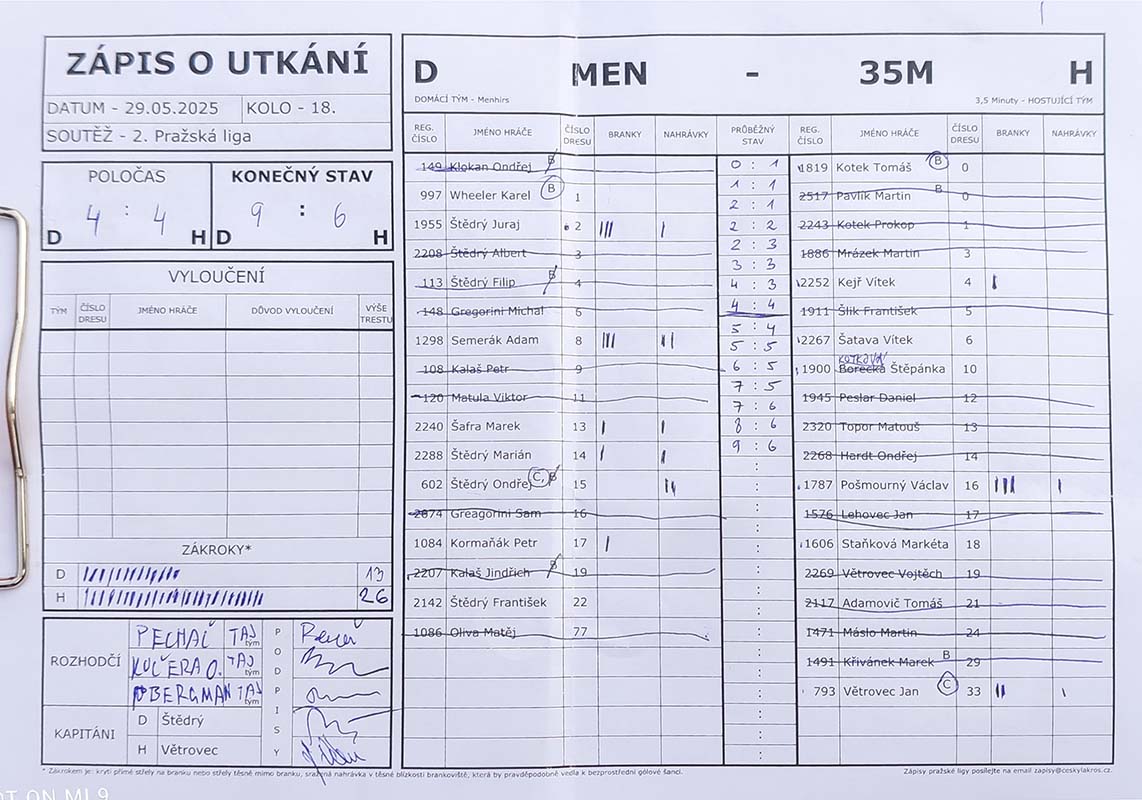 ZÁPIS O UTKÁNÍ
DATUM - 29.05.2025 KOLO - 18.
SOUTĚŽ - 2. Pražská liga
POLOČAS KONEČNÝ STAV
4 : 4 9 : 6
D H D H
VYLOUČENÍ
TÝM ČÍSLO DRESU JMÉNO HRÁČE DŮVOD VYLOUČENÍ VÝŠE TRESTU
ZÁKROKY*
D 13
H 26
ROZHODČÍ
PECHAČ TAJ tým
KUČERA O. TAJ tým
BERGMAN TAJ tým
PODPISY
KAPITÁNI
D Štědrý
H Větrovec
D MEN - 35M H
DOMÁCÍ TÝM - Menhirs 3,5 Minuty - HOSTUJÍCÍ TÝM
REG. ČÍSLO JMÉNO HRÁČE ČÍSLO DRESU BRANKY NAHRÁVKY PRŮBĚŽNÝ STAV REG. ČÍSLO JMÉNO HRÁČE ČÍSLO DRESU BRANKY NAHRÁVKY
149 Klokan Ondřej B
997 Wheeler Karel B 1
1955 Štědrý Juraj 2 III I
2208 Štědrý Albert 3
113 Štědrý Filip B 4
148 Gregorini Michal 6
1298 Semerák Adam 8 III II
108 Kalaš Petr 9
120 Matula Viktor 11
2240 Šafra Marek 13 I I
2288 Štědrý Marián 14 I I
602 Štědrý Ondřej C, B 15 II
2874 Greagorini Sam 16
1084 Kormaňák Petr 17 I
2207 Kalaš Jindřich B 19
2142 Štědrý František 22
1086 Oliva Matěj 77
0 : 1
1 : 1
2 : 1
2 : 2
2 : 3
3 : 3
4 : 3
4 : 4
5 : 4
5 : 5
6 : 5
7 : 5
7 : 6
8 : 6
9 : 6
1819 Kotek Tomáš B 0
2517 Pavlík Martin B 0
2243 Kotek Prokop 1
1886 Mrázek Martin 3
2252 Kejř Vítek 4 I
1911 Šlik František 5
2267 Šatava Vítek 6
KOTKOVÁ
1900 Borecká Štěpánka 10
1945 Peslar Daniel 12
2320 Topor Matouš 13
2268 Hardt Ondřej 14
1787 Pošmourný Václav 16 III I
1576 Lehovec Jan 17
1606 Staňková Markéta 18
2269 Větrovec Vojtěch 19
2117 Adamovič Tomáš 21
1471 Máslo Martin 24
1491 Křivánek Marek B 29
793 Větrovec Jan C 33 II I
* Zákrokem je: krytí přímé střely na branku nebo střely těsně mimo branku, sražená nahrávka v těsné blízkosti brankoviště, která by pravděpodobně vedla k bezprostřední gólové šanci.
Zápisy pražské ligy posílejte na email zapisy@ceskylakros.cz.